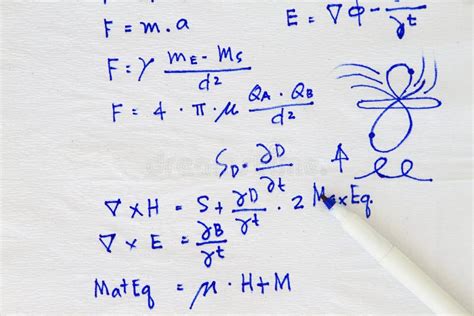 F = m.a
E = ∇Φ - —/γt
F = γ (mE - Ms)/d²
F = 4 · π · μ (QA · QB)/d²
SD = ∂D/∂t
∇ × H = S + γD/γt · 2 MaxEq.
∇ × E = γB/γt
MatEq = μ · H + M